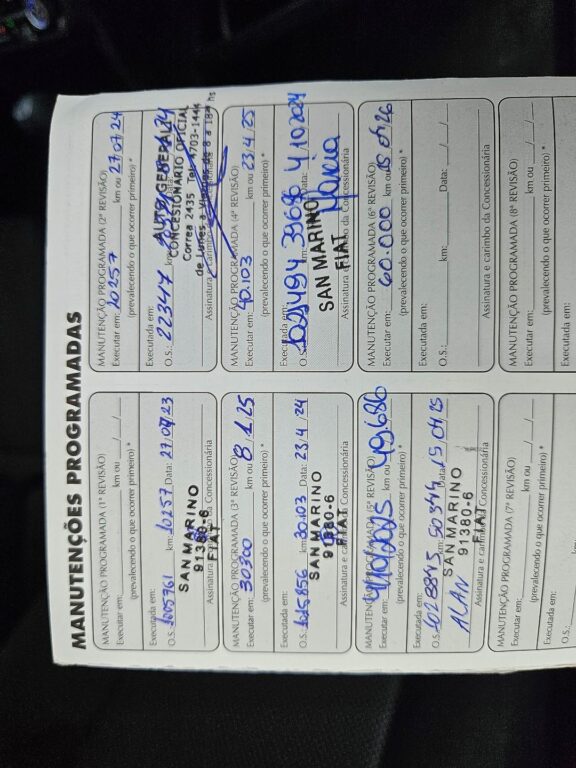 MANUTENÇÕES PROGRAMADAS
MANUTENÇÃO PROGRAMADA (1ª REVISÃO)
Executar em: km ou / /
(prevalecendo o que ocorrer primeiro) *
Executada em:
O.S.: km: 10257 Data: 27/07/23
SAN MARINO
91380-6
FIAT
Assinatura e carimbo da Concessionária
MANUTENÇÃO PROGRAMADA (2ª REVISÃO)
Executar em: 20257 km ou 27/07/24
(prevalecendo o que ocorrer primeiro) *
Executada em:
O.S.: 22347 km: Data:
AUTO GENERAL
CONCESIONARIO OFICIAL
Correa 2435 Tel. 4703-1444
de Lunes a Viernes de 8 a 18 hs
Assinatura e carimbo da Concessionária
MANUTENÇÃO PROGRAMADA (3ª REVISÃO)
Executar em: 30300 km ou 8/1/25
(prevalecendo o que ocorrer primeiro) *
Executada em:
O.S.: km: 30.103 Data: 23/4/24
SAN MARINO
91380-6
FIAT
Assinatura e carimbo da Concessionária
MANUTENÇÃO PROGRAMADA (4ª REVISÃO)
Executar em: 40.103 km ou 23/4/25
(prevalecendo o que ocorrer primeiro) *
Executada em:
O.S. 39686 Data: 4/10/2024
SAN MARINO
FIAT
Assinatura e carimbo da Concessionária
MANUTENÇÃO PROGRAMADA (5ª REVISÃO)
Executar em: 49.686
(prevalecendo o que ocorrer primeiro) *
Executada em:
O.S. km: 50344 Data: 15/04/25
ALAN
SAN MARINO
91380-6
FIAT
Assinatura e carimbo da Concessionária
MANUTENÇÃO PROGRAMADA (6ª REVISÃO)
Executar em: 60.000 km ou
(prevalecendo o que ocorrer primeiro) *
Executada em:
O.S.: km: Data: / /
Assinatura e carimbo da Concessionária
MANUTENÇÃO PROGRAMADA (7ª REVISÃO)
Executar em: km ou / /
(prevalecendo o que ocorrer primeiro) *
Executada em:
O.S.: km:
MANUTENÇÃO PROGRAMADA (8ª REVISÃO)
Executar em: km ou / /
(prevalecendo o que ocorrer primeiro) *
Executada em: